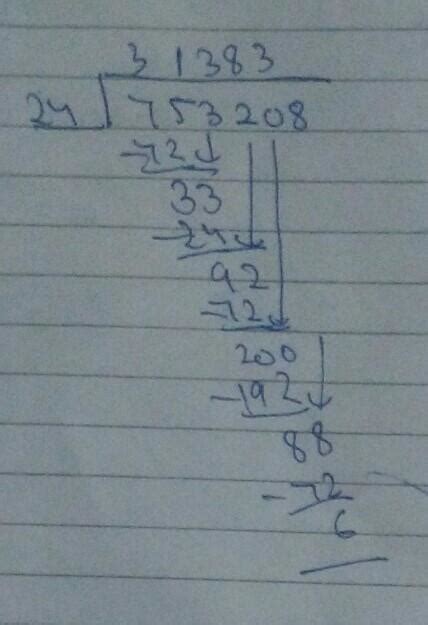 31383
24 753208
-72
33
-24
92
-72
200
-192
88
-72
6